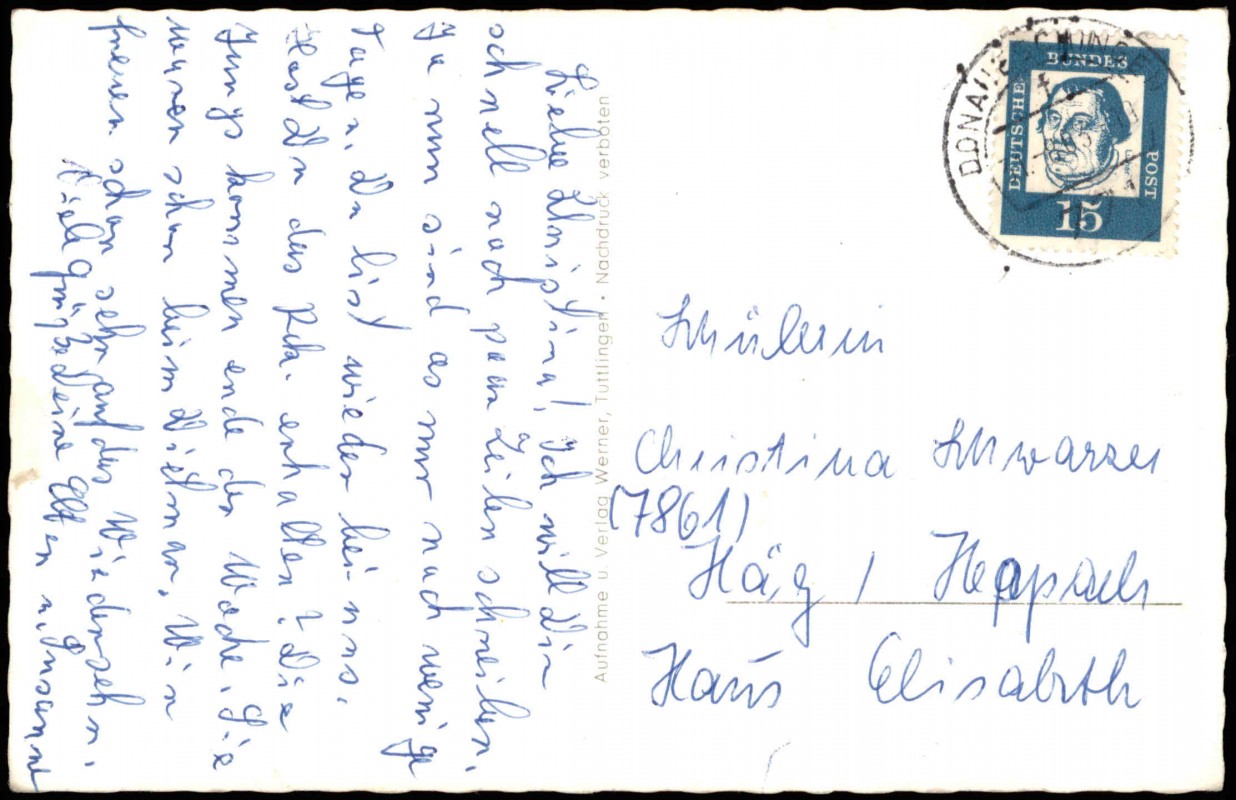 Liebe Christina! Ich will Dir
schnell noch paar Zeilen schreiben.
Ja nun sind es nur noch wenige
Tage u. Du bist wieder bei uns.
Hast Du das Pck. erhalten? Die
Jungs kommen ende der Woche. Sie
waren schon beim Dietmar. Wir
freuen schon sehr auf das Wiedersehn.
Viele Grüße Deine Eltern u. Susanne
Aufnahme u. Verlag Werner, Tuttlingen • Nachdruck verboten
DONAUESCHINGEN
DEUTSCHE
BUNDES
POST
15
Schülerin
Christina Schwarzer
(7861)
Häg /
Haus Elisabeth